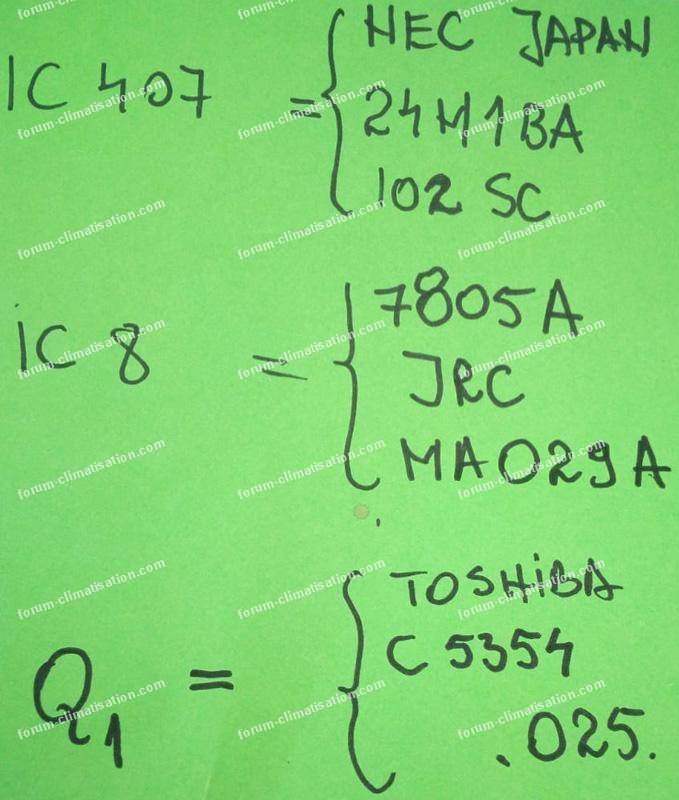 IC 407 = { NEC JAPAN
24M1BA
102 SC
IC 8 = { 7805A
JRC
MA029A
Q1 = { TOSHIBA
C 5354
.025.
forum-climatisation.com